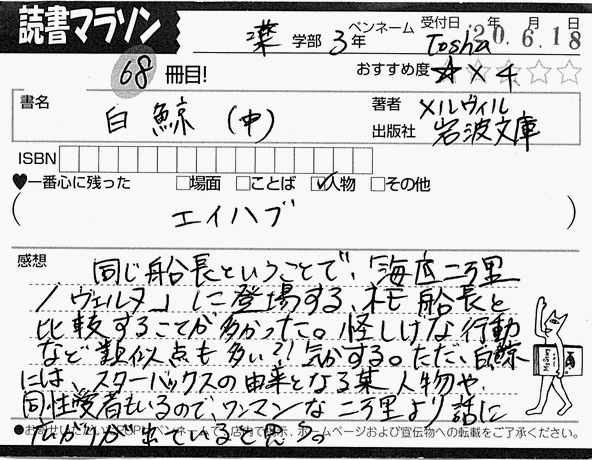 読書マラソン
薬 学部 3年 ペンネーム Tosha 受付日 '20年 6月 18日
68 冊目! おすすめ度 ☆×4
書名 白鯨 (中) 著者 メルヴィル
出版社 岩波文庫
ISBN
♥一番心に残った □場面 □ことば ☑人物 □その他
( エイハブ )
感想
同じ船長ということで、「海底二万里
/ヴェルヌ」に登場する、ネモ船長と
比較することが多かった。怪しげな行動
など類似点も多い気がする。ただ、白鯨
には、スターバックスの由来となる某人物や、
同性愛者もいるので、ワンマンな二万里より話に
広がりが出ていると思う。
ペンネームで 店内で 示、ホームページおよび宣伝物への転載をご了承ください。